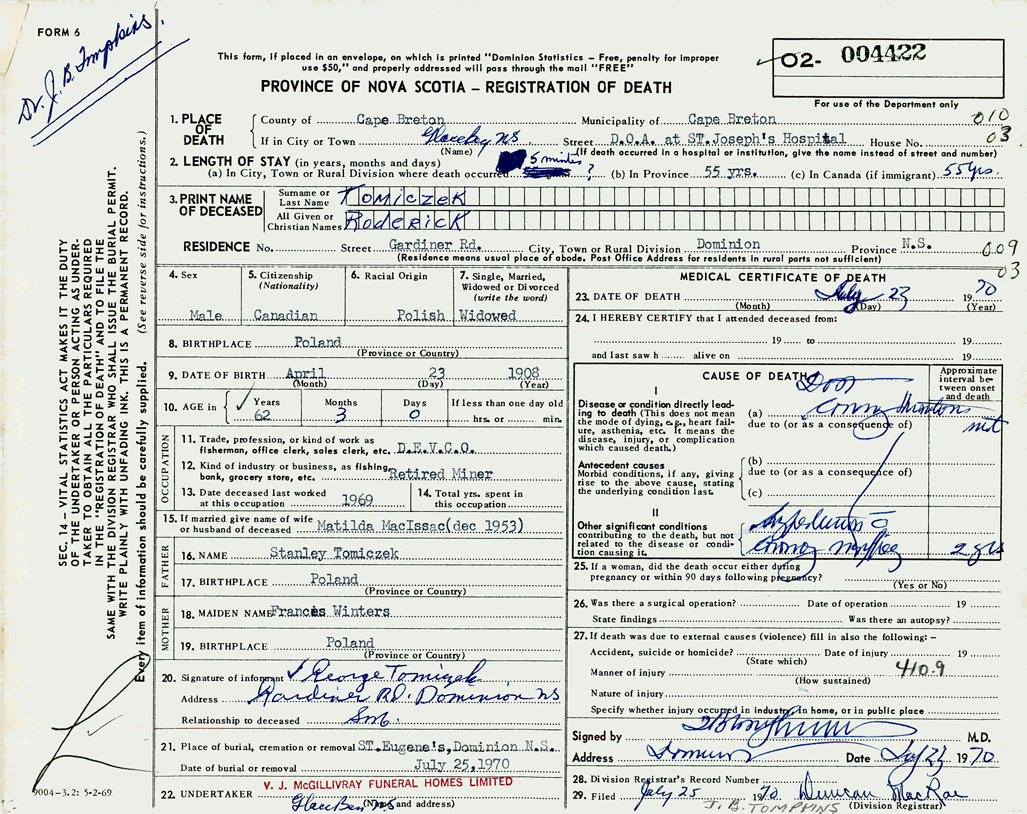 FORM 6
Dr. J. B. Tompkins.
This form, if placed in an envelope, on which is printed "Dominion Statistics – Free, penalty for improper
use $50," and properly addressed will pass through the mail "FREE"
PROVINCE OF NOVA SCOTIA – REGISTRATION OF DEATH
02- 004422
For use of the Department only
1. PLACE OF DEATH
County of Cape Breton Municipality of Cape Breton 010
If in City or Town Glace Bay NS Street D.O.A. at ST.Joseph's Hospital House No. 03
(Name) (If death occurred in a hospital or institution, give the name instead of street and number)
2. LENGTH OF STAY (in years, months and days)
(a) In City, Town or Rural Division where death occurred 5 mintes ? (b) In Province 55 yrs. (c) In Canada (if immigrant) 55 yrs.
3. PRINT NAME OF DECEASED
Surname or Last Name TOMICZEK
All Given or Christian Names RODERICK
RESIDENCE No. Street Gardiner Rd. City, Town or Rural Division Dominion Province N.S. 009
(Residence means usual place of abode. Post Office Address for residents in rural parts not sufficient) 03
4. Sex Male
5. Citizenship (Nationality) Canadian
6. Racial Origin Polish
7. Single, Married, Widowed or Divorced (write the word) Widowed
8. BIRTHPLACE Poland
(Province or Country)
9. DATE OF BIRTH April 23 1908
(Month) (Day) (Year)
10. AGE in Years 62 Months 3 Days 0 If less than one day old hrs. or min.
OCCUPATION
11. Trade, profession, or kind of work as
fisherman, office clerk, sales clerk, etc. D.E.V.C.O.
12. Kind of industry or business, as fishing,
bank, grocery store, etc. Retired Miner
13. Date deceased last worked at this occupation 1969
14. Total yrs. spent in this occupation
15. If married give name of wife
or husband of deceased Matilda MacIssac(dec 1953)
FATHER
16. NAME Stanley Tomiczek
17. BIRTHPLACE Poland
(Province or Country)
MOTHER
18. MAIDEN NAME Frances Winters
19. BIRTHPLACE Poland
(Province or Country)
20. Signature of informant George Tomiczek
Address Gardiner RD. Dominion NS
Relationship to deceased Son.
21. Place of burial, cremation or removal ST.Eugene's,Dominion N.S.
Date of burial or removal July 25,1970
V. J. McGILLIVRAY FUNERAL HOMES LIMITED
22. UNDERTAKER Glace Bay NS
(Name and address)
MEDICAL CERTIFICATE OF DEATH
23. DATE OF DEATH July 23 1970
(Month) (Day) (Year)
24. I HEREBY CERTIFY that I attended deceased from:
19 to 19
and last saw h alive on 19
CAUSE OF DEATH
Approximate interval between onset and death
I
Disease or condition directly leading to death (This does not mean the mode of dying, e.g., heart failure, asthenia, etc. It means the disease, injury, or complication which caused death.)
(a)
due to (or as a consequence of)
Antecedent causes
Morbid conditions, if any, giving rise to the above cause, stating the underlying condition last.
(b)
due to (or as a consequence of)
(c)
II
Other significant conditions contributing to the death, but not related to the disease or condition causing it.
25. If a woman, did the death occur either during
pregnancy or within 90 days following pregnancy?
(Yes or No)
26. Was there a surgical operation? Date of operation 19
State findings Was there an autopsy?
27. If death was due to external causes (violence) fill in also the following: –
Accident, suicide or homicide? Date of injury 19
(State which)
Manner of injury 410.9
(How sustained)
Nature of injury
Specify whether injury occurred in industry, in home, or in public place
Signed by M.D.
Address Dominion Date July 23 1970
28. Division Registrar's Record Number
29. Filed July 25 1970 Duncan MacRae
J. B. TOMPKINS (Division Registrar)
9004–3.2: 5-2-69
SEC. 14 – VITAL STATISTICS ACT MAKES IT THE DUTY
OF THE UNDERTAKER OR PERSON ACTING AS UNDER-
TAKER TO OBTAIN ALL THE PARTICULARS REQUIRED
IN THE "REGISTRATION OF DEATH" AND TO FILE THE
SAME WITH THE DIVISION REGISTRAR WHO SHALL ISSUE THE BURIAL PERMIT.
WRITE PLAINLY WITH UNFADING INK. THIS IS A PERMANENT RECORD.
Every item of information should be carefully supplied. (See reverse side for instructions.)